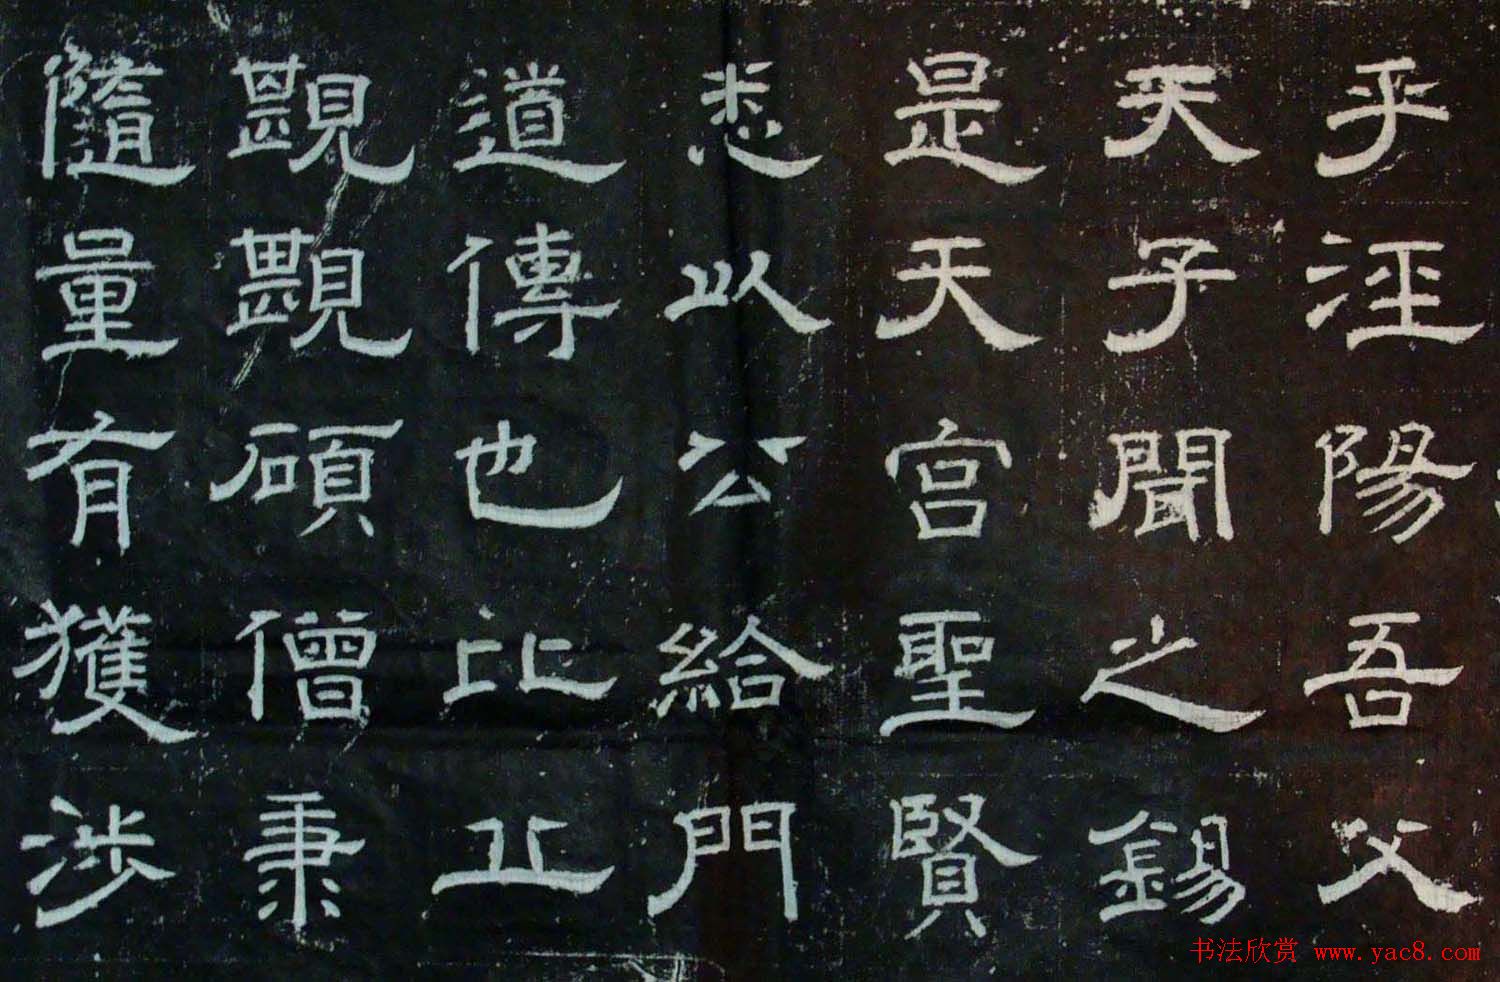 乎涇陽吾父
天子聞之錫
是天宮聖賢
悉以公給門
道傳也比丘
覬覬碩僧秉
隨量有獲涉
书法欣赏 www.yac8.com